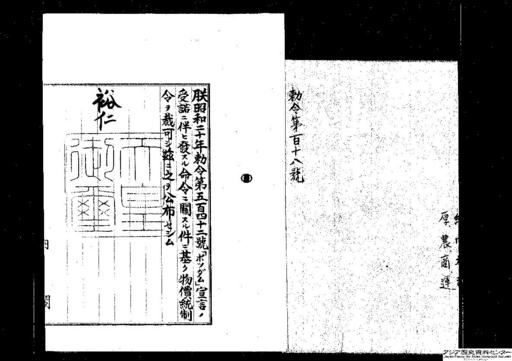 勅令第百十八號
朕昭和二十年勅令第五百四十二號「ポツダム」宣言ノ
受諾ニ伴ヒ發スル命令ニ關スル件ニ基ク物價統制
令ヲ裁可シ茲ニ之ヲ公布セシム
裕仁
天皇
御璽
内閣
厚農商運
アジア歴史資料センター